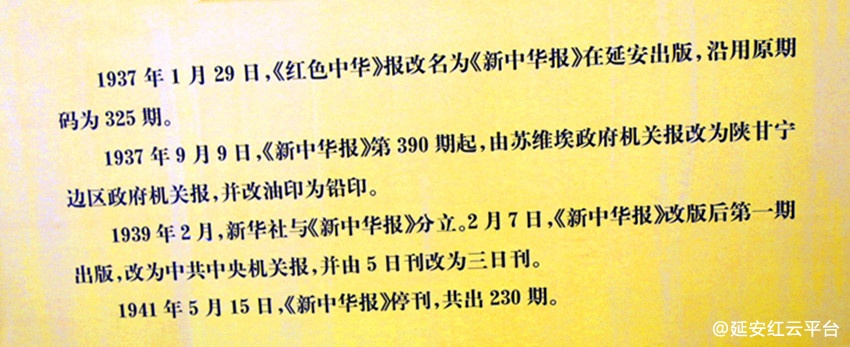 1937 年 1 月 29 日，《红色中华》报改名为《新中华报》在延安出版，沿用原期
码为 325 期。
1937 年 9 月 9 日，《新中华报》第 390 期起，由苏维埃政府机关报改为陕甘宁
边区政府机关报，并改油印为铅印。
1939 年 2 月，新华社与《新中华报》分立。2 月 7 日，《新中华报》改版后第一期
出版，改为中共中央机关报，并由 5 日刊改为三日刊。
1941 年 5 月 15 日，《新中华报》停刊，共出 230 期。
@延安红云平台